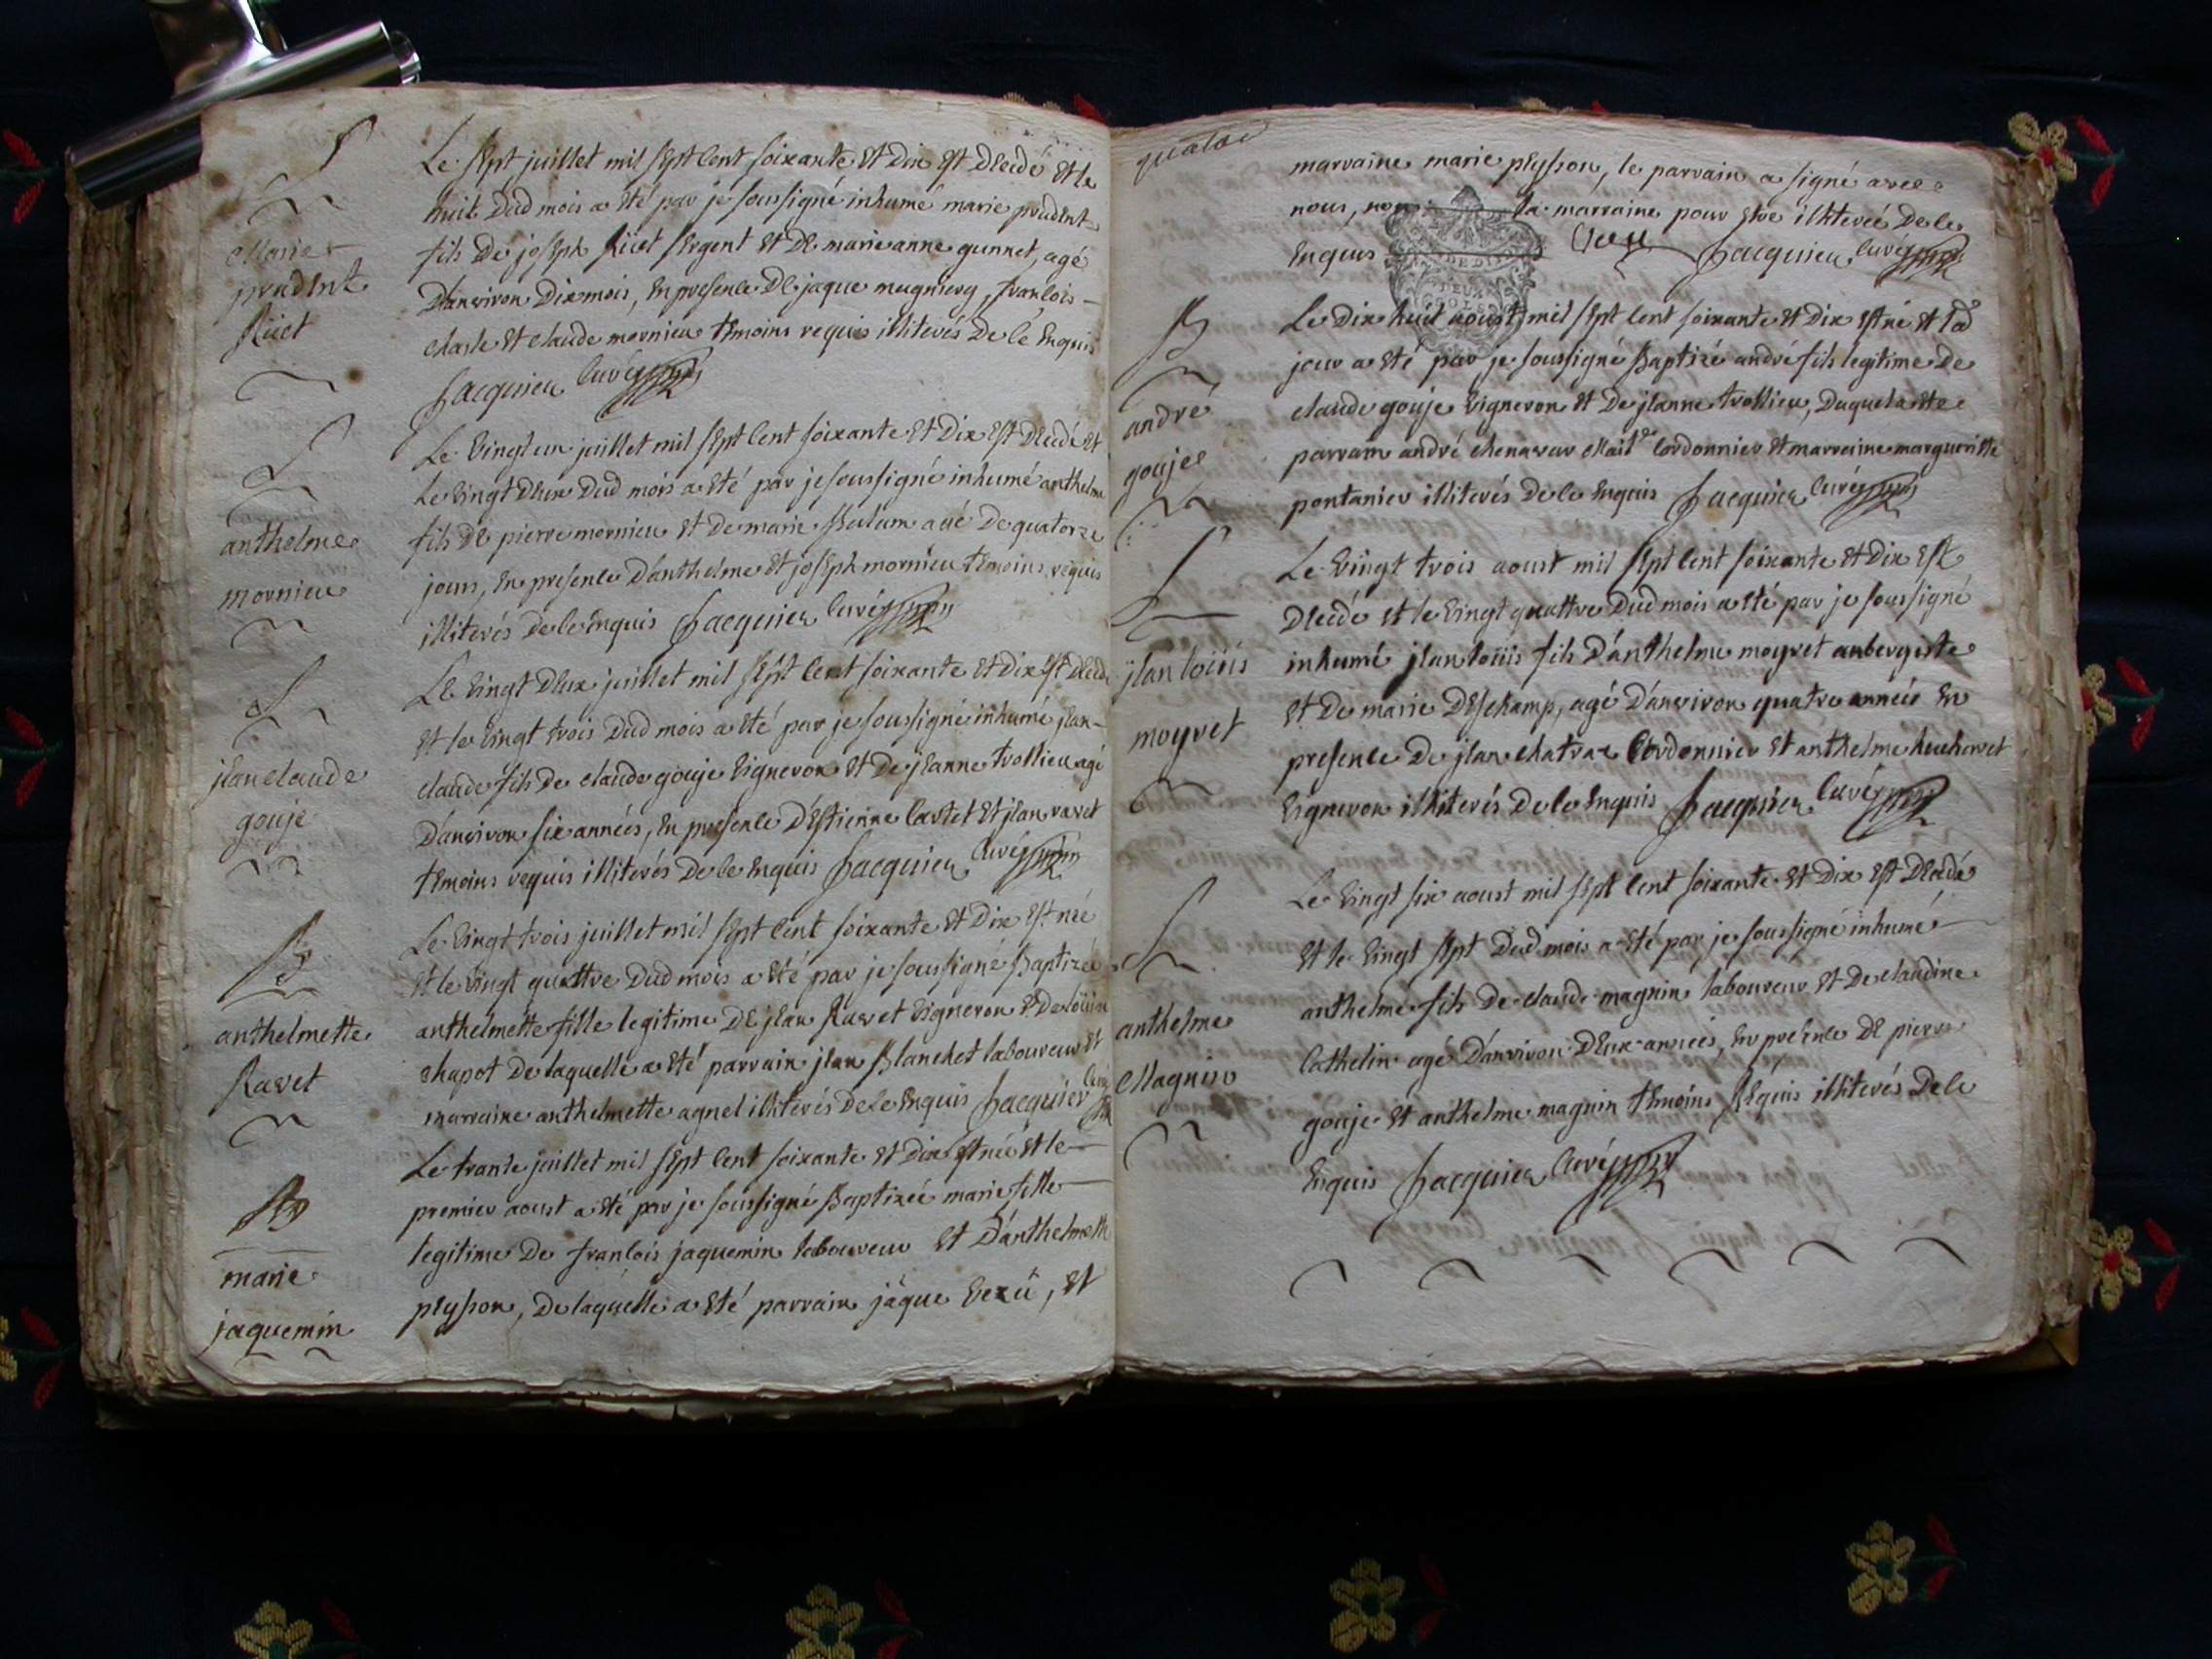 S
Marie
prudent
Rüet
Le sept juillet mil sept cent soixante et dix est decedé et le
huit dud mois a eté par je soussigné inhumé marie prudent
fils de joseph Rüet sergent et de marie anne gunnet, agé
d'anviron dix mois, en presence de jaque mugniery, francois
charle et claude mornieu temoins requis illiterés de ce enquis
Jacquier curé
S
anthelme
mornieu
Le vingt un juillet mil sept cent soixante et dix est decedé et
le vingt deux dud mois a eté par je soussigné inhumé anthelme
fils de pierre mornieu et de marie agé de quatorze
jours, en presence d'anthelme et joseph mornieu temoins requis
illiterés de ce enquis Jacquier curé
S
jean claude
gouje
Le vingt deux juillet mil sept cent soixante et dix est decedé
et le vingt trois dud mois a eté par je soussigné inhumé jean
claude fils de claude gouje vigneron et de jeanne trollieu agé
d'anviron six années, en presence d'estienne et jean ravet
temoins requis illiterés de ce enquis Jacquier curé
B
anthelmette
Ravet
Le vingt trois juillet mil sept cent soixante et dix est née
et le vingt quattre dud mois a eté par je soussigné Baptizée
anthelmette fille legitime de jean Ravet vigneron et de loüise
chapot de laquelle a eté parrain jean Blanchet laboureur et
marraine anthelmette agnel illiterés de ce enquis Jacquier curé
B
marie
jaquemin
Le trante juillet mil sept cent soixante et dix est née et le
premier aoust a eté par je soussigné Baptizée marie fille
legitime de francois jaquemin laboureur et d'anthelmette
peysson, de laquelle a eté parrain jaque vezü, et
marraine marie peysson, le parrain a signé avec
nous, non la marraine pour etre illiterée de ce
enquis Jacquier curé
B
andré
gouje
Le dix huit aoust mil sept cent soixante et dix est né et led
jour a eté par je soussigné Baptizé andré fils legitime de
claude gouje vigneron et de jeanne trollieu, duquel a eté
parrain andré chenavar Mait re cordonnier et marraine margueritte
pontanier illiterés de ce enquis Jacquier curé
S
jean loüis
moyret
Le vingt trois aoust mil sept cent soixante et dix est
decedé et le vingt quattre dud mois a eté par je soussigné
inhumé jean loüis fils d'anthelme moyret aubergiste
et de marie deschamp, agé d'anviron quatre années en
presence de jean chatrar cordonnier et anthelme hucheret
vigneron illiterés de ce enquis Jacquier curé
S
anthelme
Magnin
Le vingt six aoust mil sept cent soixante et dix est decedé
et le vingt sept dud mois a eté par je soussigné inhumé
anthelme fils de claude magnin laboureur et de claudine
cathelin agé d'anviron deux années, en presence de pierre
gouje et anthelme magnin temoins requis illiterés de ce
enquis Jacquier curé